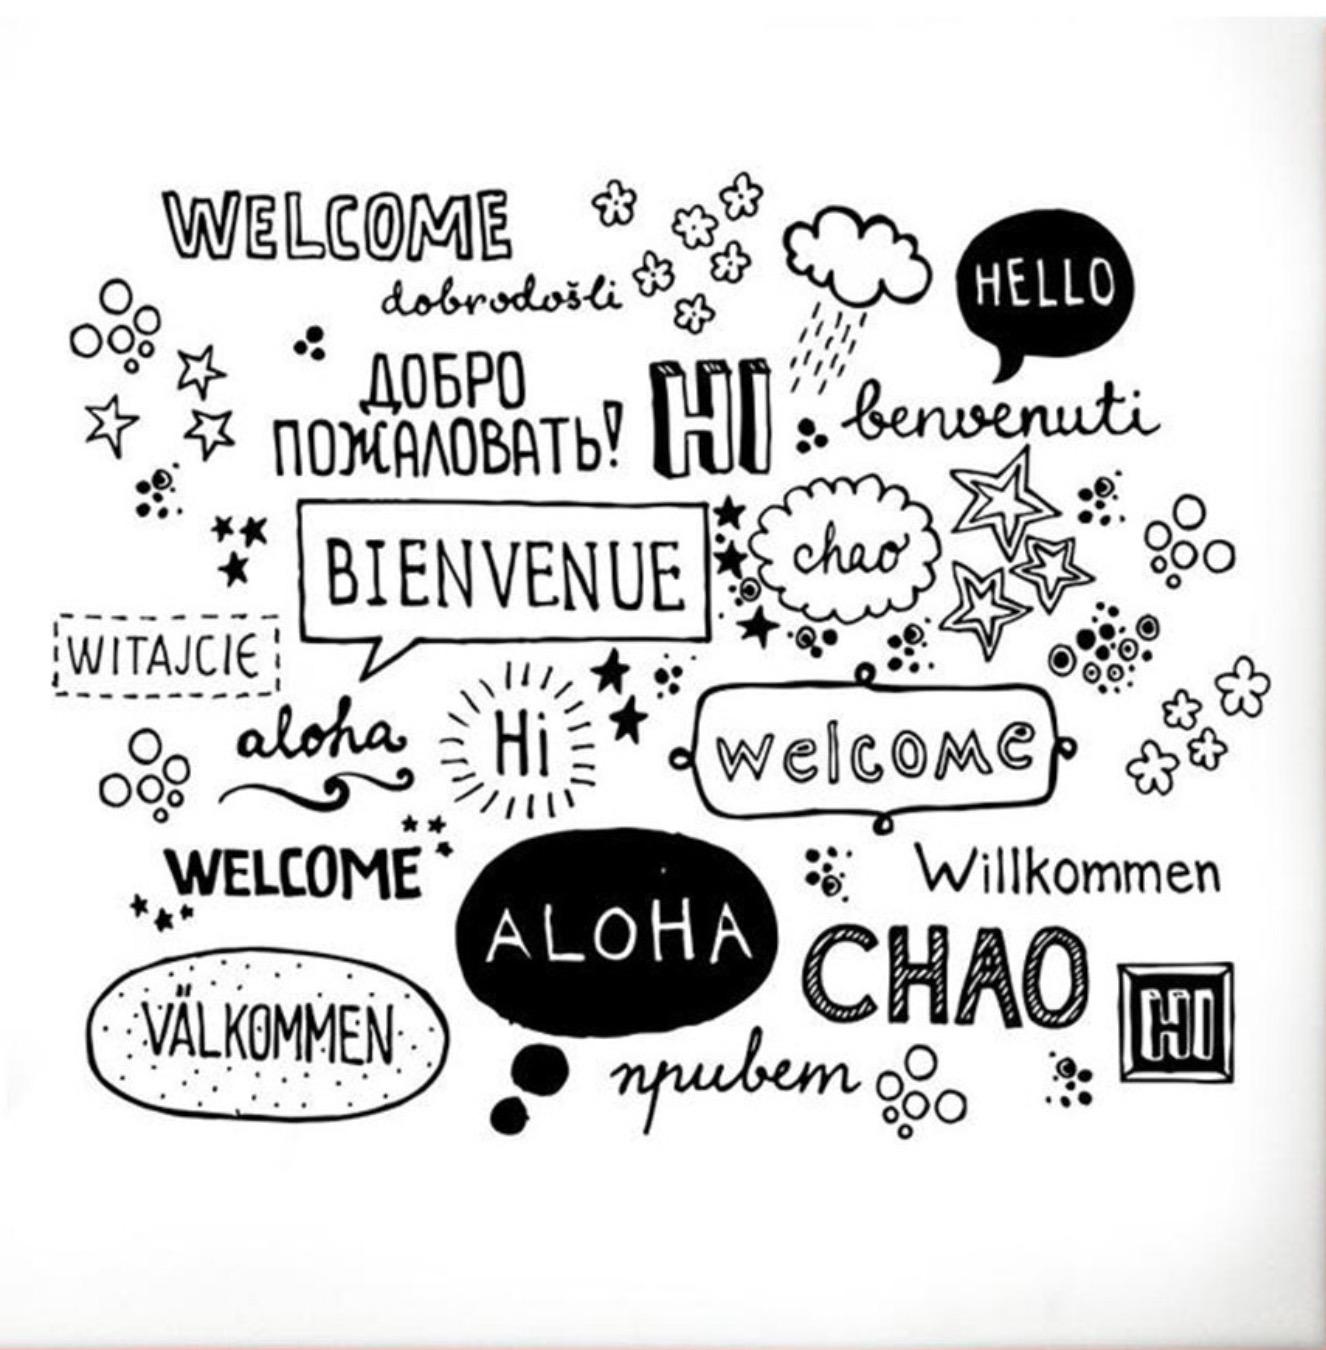 WELCOME
HELLO
dobrodošli
ДОБРО
ПОЖАЛОВАТЬ!
HI
benvenuti
BIENVENUE
chao
WITAJCIE
aloha
Hi
welcome
WELCOME
Willkommen
ALOHA
CHAO
VÄLKOMMEN
HI
привет